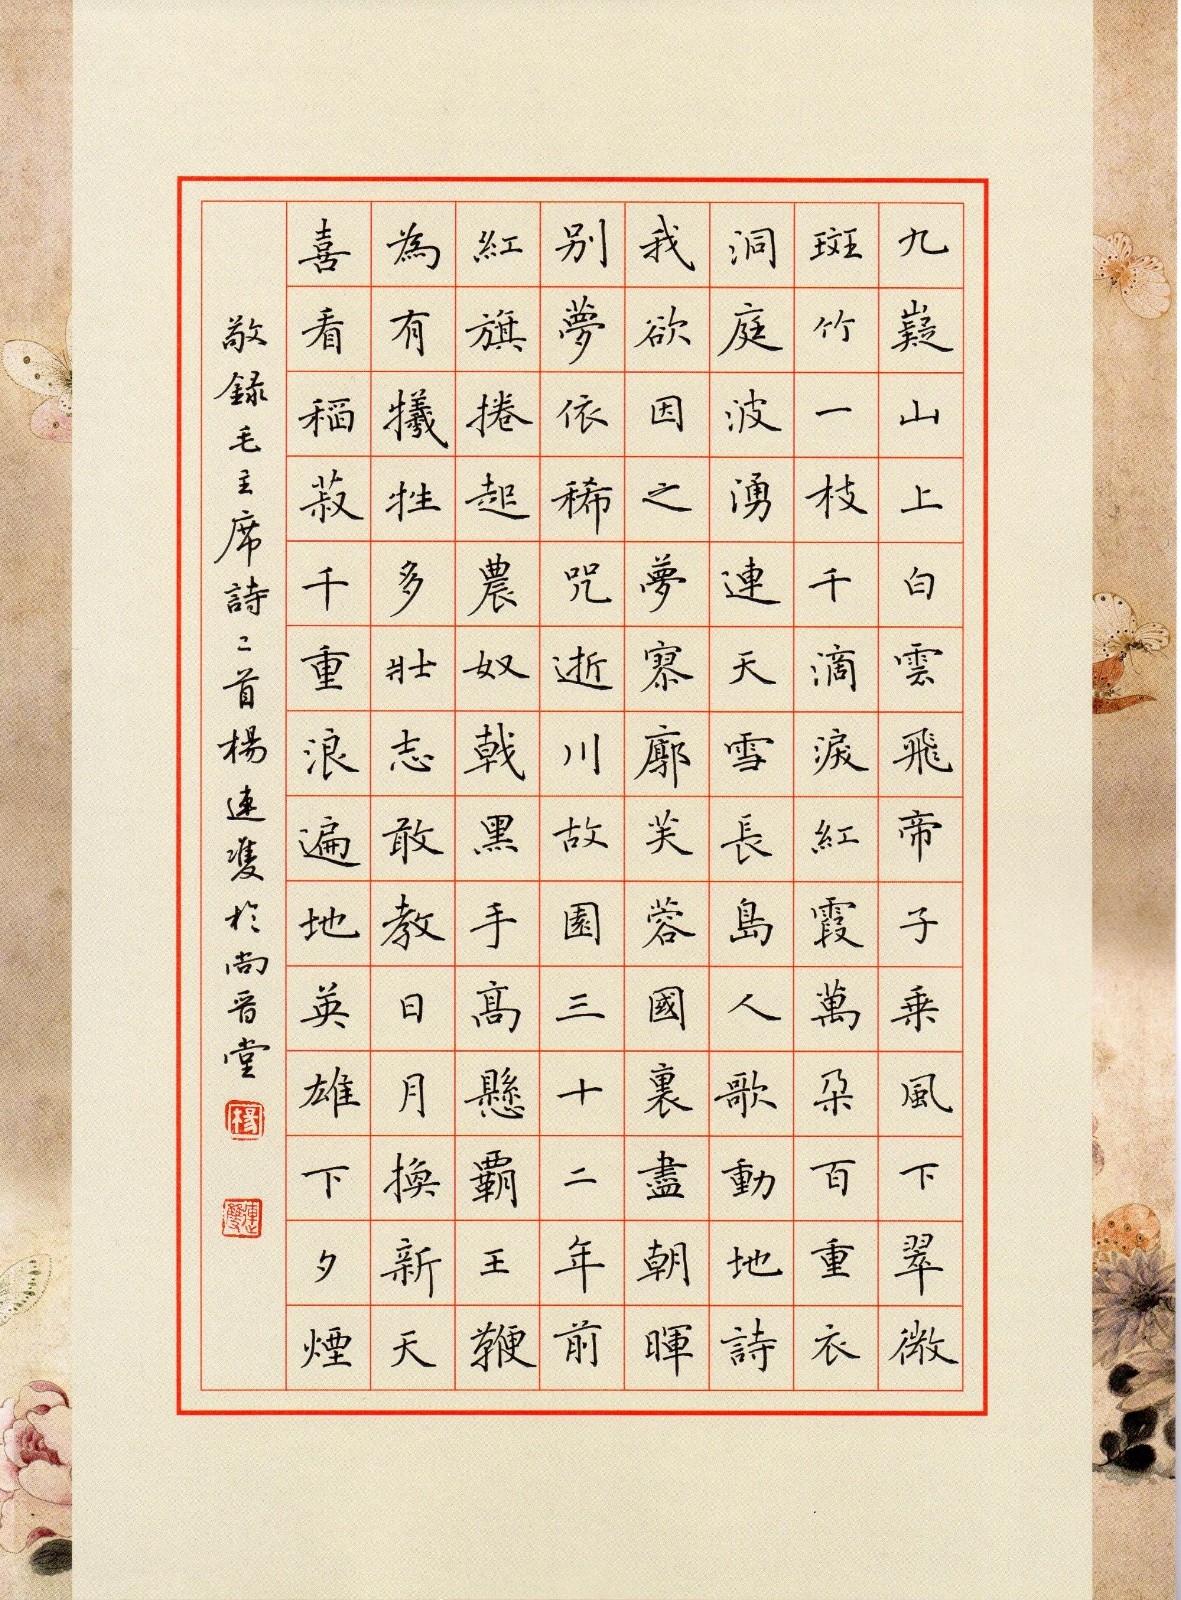 九嶷山上白雲飛帝子乗風下翠微
斑竹一枝千滴淚紅霞萬朵百重衣
洞庭波湧連天雪長島人歌動地詩
我欲因之夢寥廓芙蓉國裏盡朝暉
别夢依稀咒逝川故園三十二年前
紅旗捲起農奴戟黑手高懸覇王鞭
為有犧牲多壯志敢教日月換新天
喜看稻菽千重浪遍地英雄下夕煙
敬錄毛主席詩二首楊連雙於尚晋堂
楊
連雙